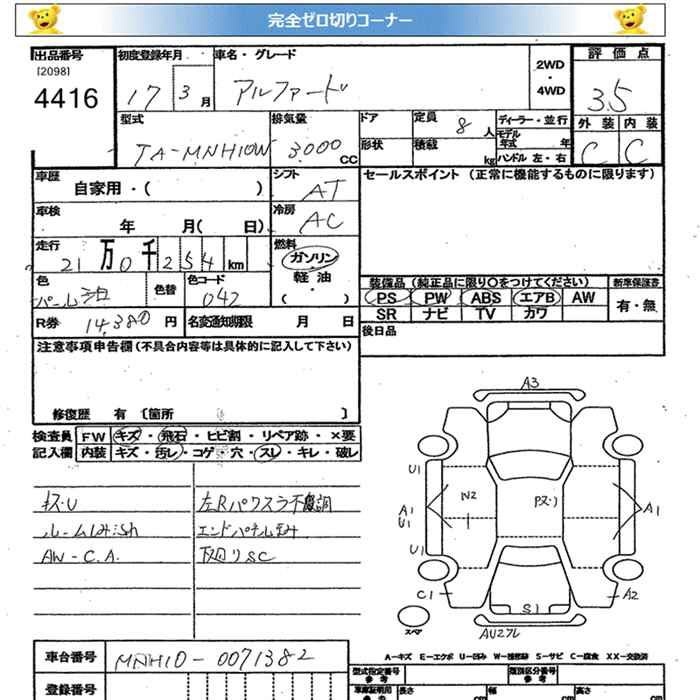 完全ゼロ切りコーナー
出品番号 初度登録年月 車名・グレード 2WD・4WD 評価点
[2098]
4416 17 3月 アルファード 3.5
型式 排気量 ドア 定員 8人 ディーラー・並行 外装 内装
モデル年式 年
TA-MNH10W 3000CC 形状 積載 kg ハンドル 左・右 C C
車歴 自家用・( ) シフト AT セールスポイント (正常に機能するものに限ります)
車検 年 月( 日) 冷房 AC
走行 21万0千254km 燃料 ガソリン 軽油・( )
色 パール白 色替 色コード 042 装備品(純正品に限り○をつけてください) 新車保証書
PS PW ABS エアB AW 有・無
SR ナビ TV カワ
R券 14,380円 名変通知期限 月 日 後日品
注意事項申告欄(不具合内容等は具体的に記入して下さい)
修復歴 有〔箇所 〕
検査員記入欄 FW キズ・飛石・ヒビ割・リペア跡・×要
内装 キズ・汚レ・コゲ・穴・スレ・キレ・破レ
キズ・U 左Rパワスラ不調
ルームしみ S/h エンドパネル歪み
AW-C.A. 下回りSC
A3
U1
A1
U1
N2
A1
U1
C1
A2
S1
スペア
AU27L
A-キズ E-エクボ U-凹み W-補修跡 S-サビ C-腐食 XX-交換済
車台番号 MNH10-0071382
型式指定番号 参考 類別区分番号 参考
登録番号 車庫証明用 参考 長さ cm 幅 cm 高さ cm